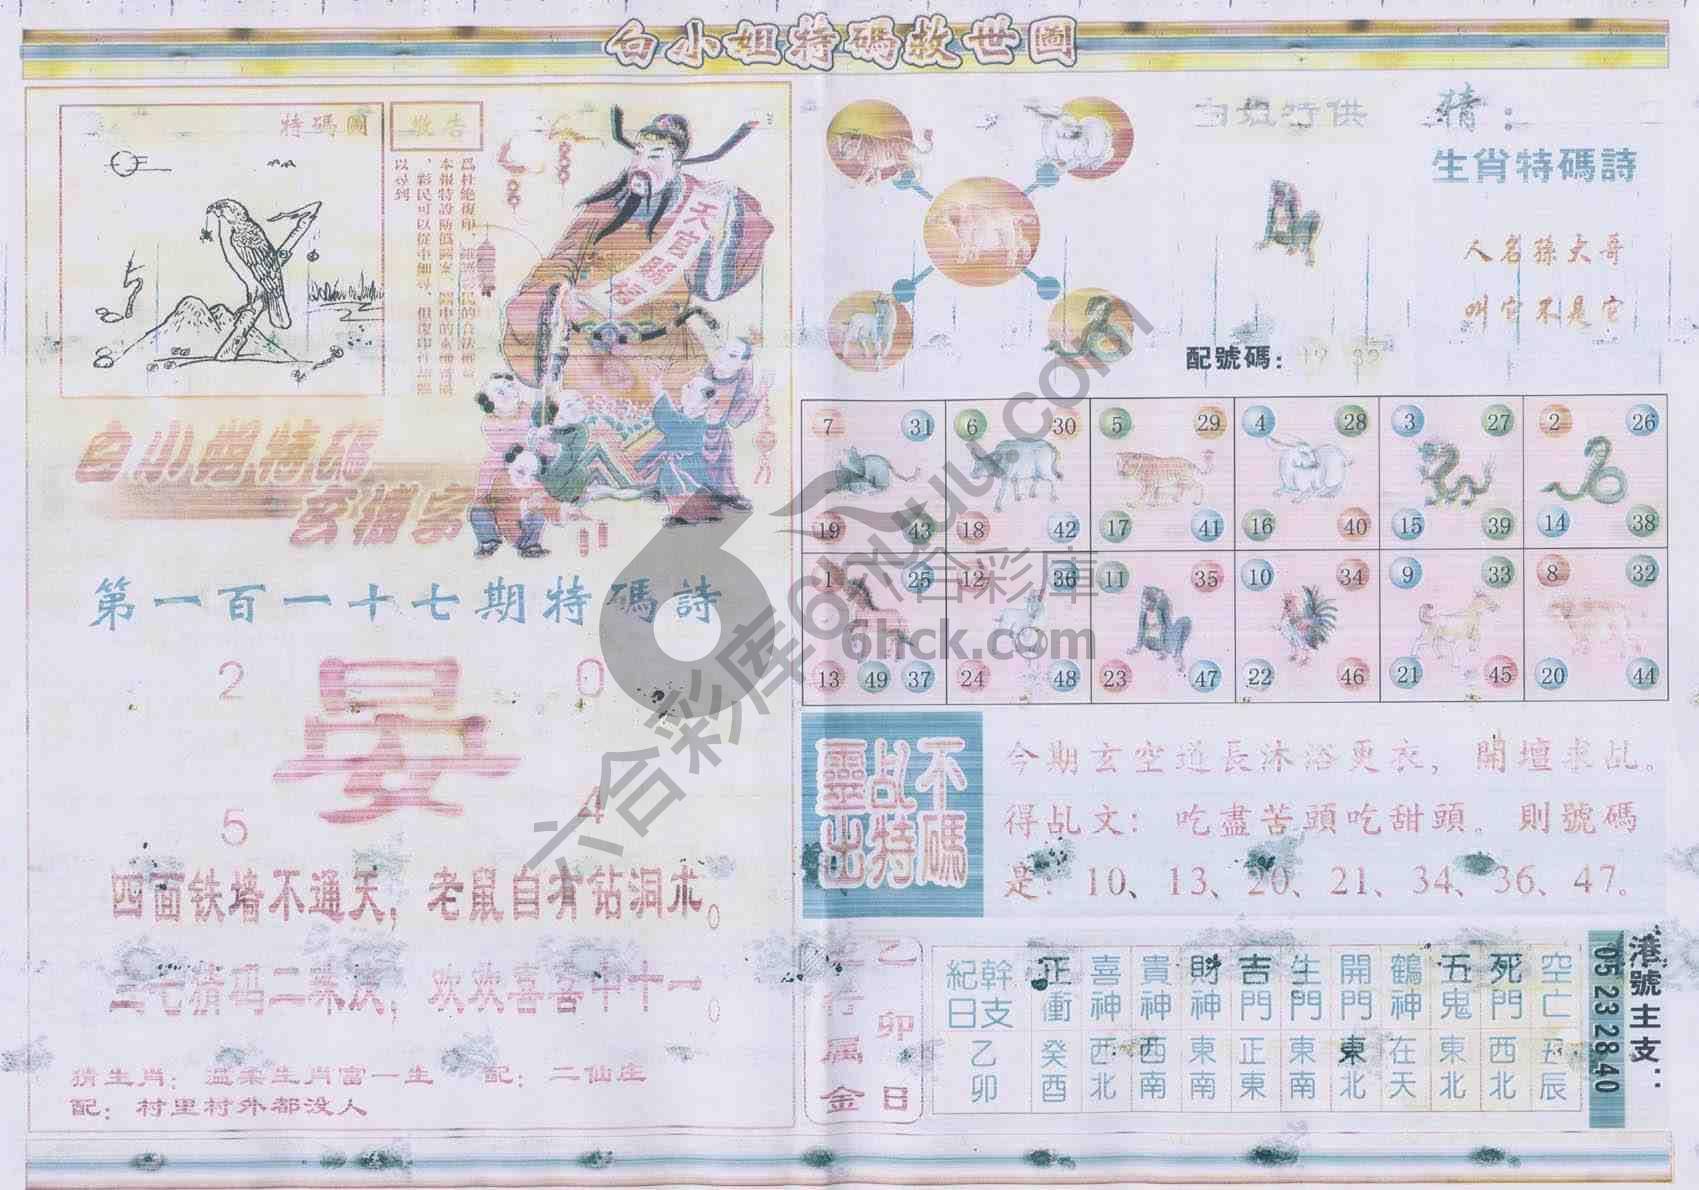 白小姐特碼救世圖
特碼圖
敬告
爲杜絶復印、
本報特設防僞圖案、
、彩民可以從中細尋、但復印件
以尋到
天官賜福
白小姐特碼
玄襀字
第一百一十七期特碼詩
2 0
晏
5 4
四面铁墙不通天，老鼠自有钻洞术。
三七猜码二来次，欢欢喜喜中十一。
猜生肖：温柔生肖富一生 配：二仙庄
配：村里村外都没人
白姐行供 猜：
生肖特碼詩
人名孫大哥
叫它不是它
配號碼：
7 31 6 30 5 29 4 28 3 27 2 26
19 43 18 42 17 41 16 40 15 39 14 38
1 25 12 36 11 35 10 34 9 33 8 32
13 49 37 24 48 23 47 22 46 21 45 20 44
靈乩不
出特碼
今期玄空道長沐浴更衣，開壇求乩。
得乩文：吃盡苦頭吃甜頭。則號碼
是：10、13、20、21、34、36、47。
乙卯日
五行属金
紀日 幹支 正衝 喜神 貴神 財神 吉門 生門 開門 鶴神 五鬼 死門 空亡
乙卯 癸酉 西北 西南 東南 正東 東南 東北 在天 東北 西北 丑辰
港號主支：
05 23 28 40
六合彩库 6htuku.com
六合彩庫
6hck.com